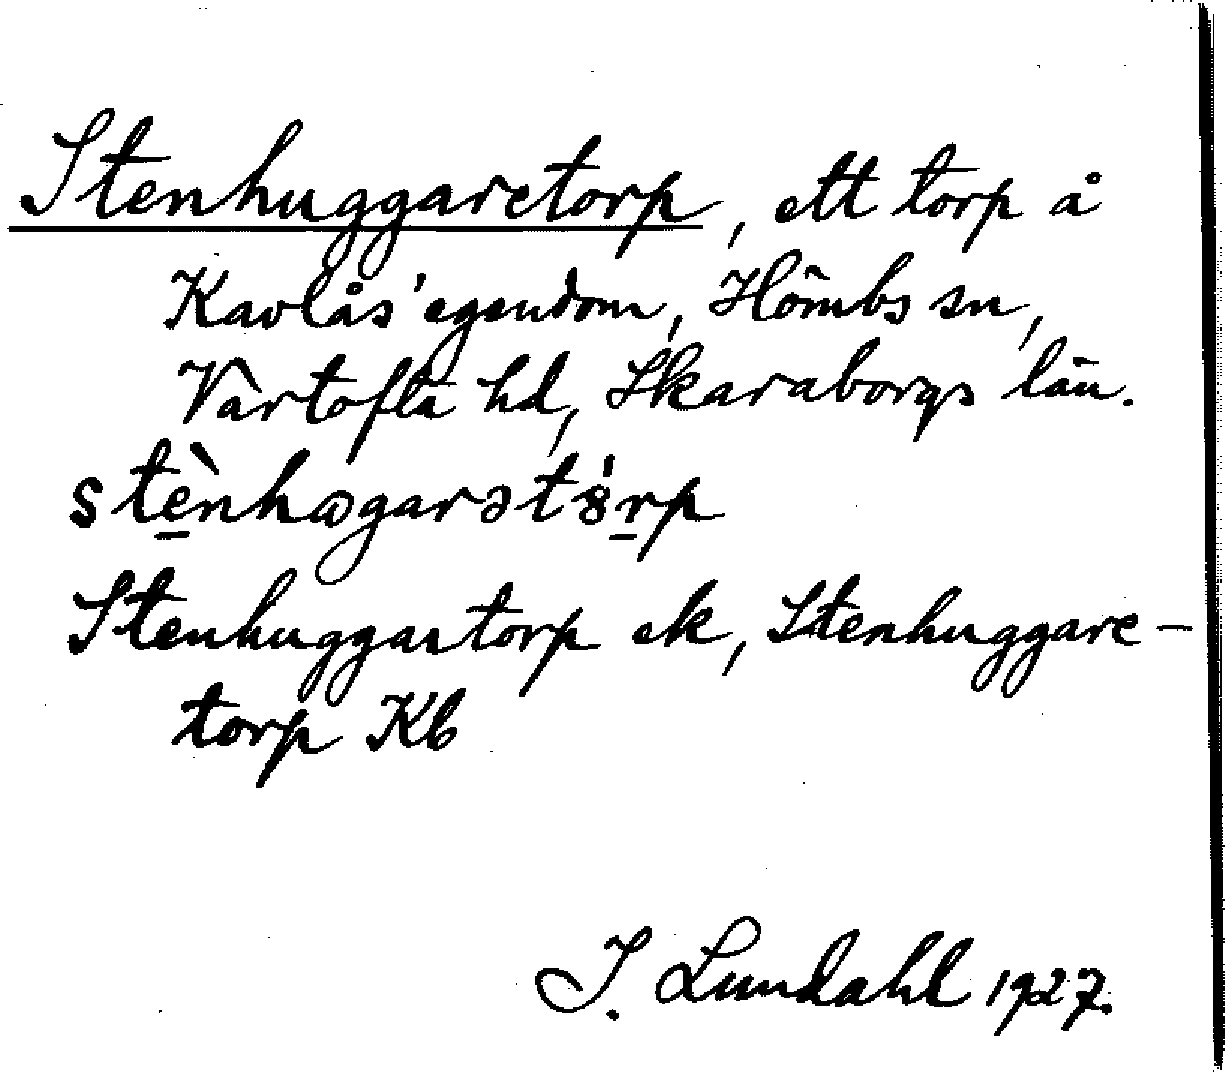 Stenhuggaretorp, ett torp å
Kavlås' egendom, Hömbs sn,
Vartofta hd, Skaraborgs län.
stènhωgarət8́rp
Stenhuggartorp ek, Stenhuggare-
torp Kb
I. Lundahl 1927.